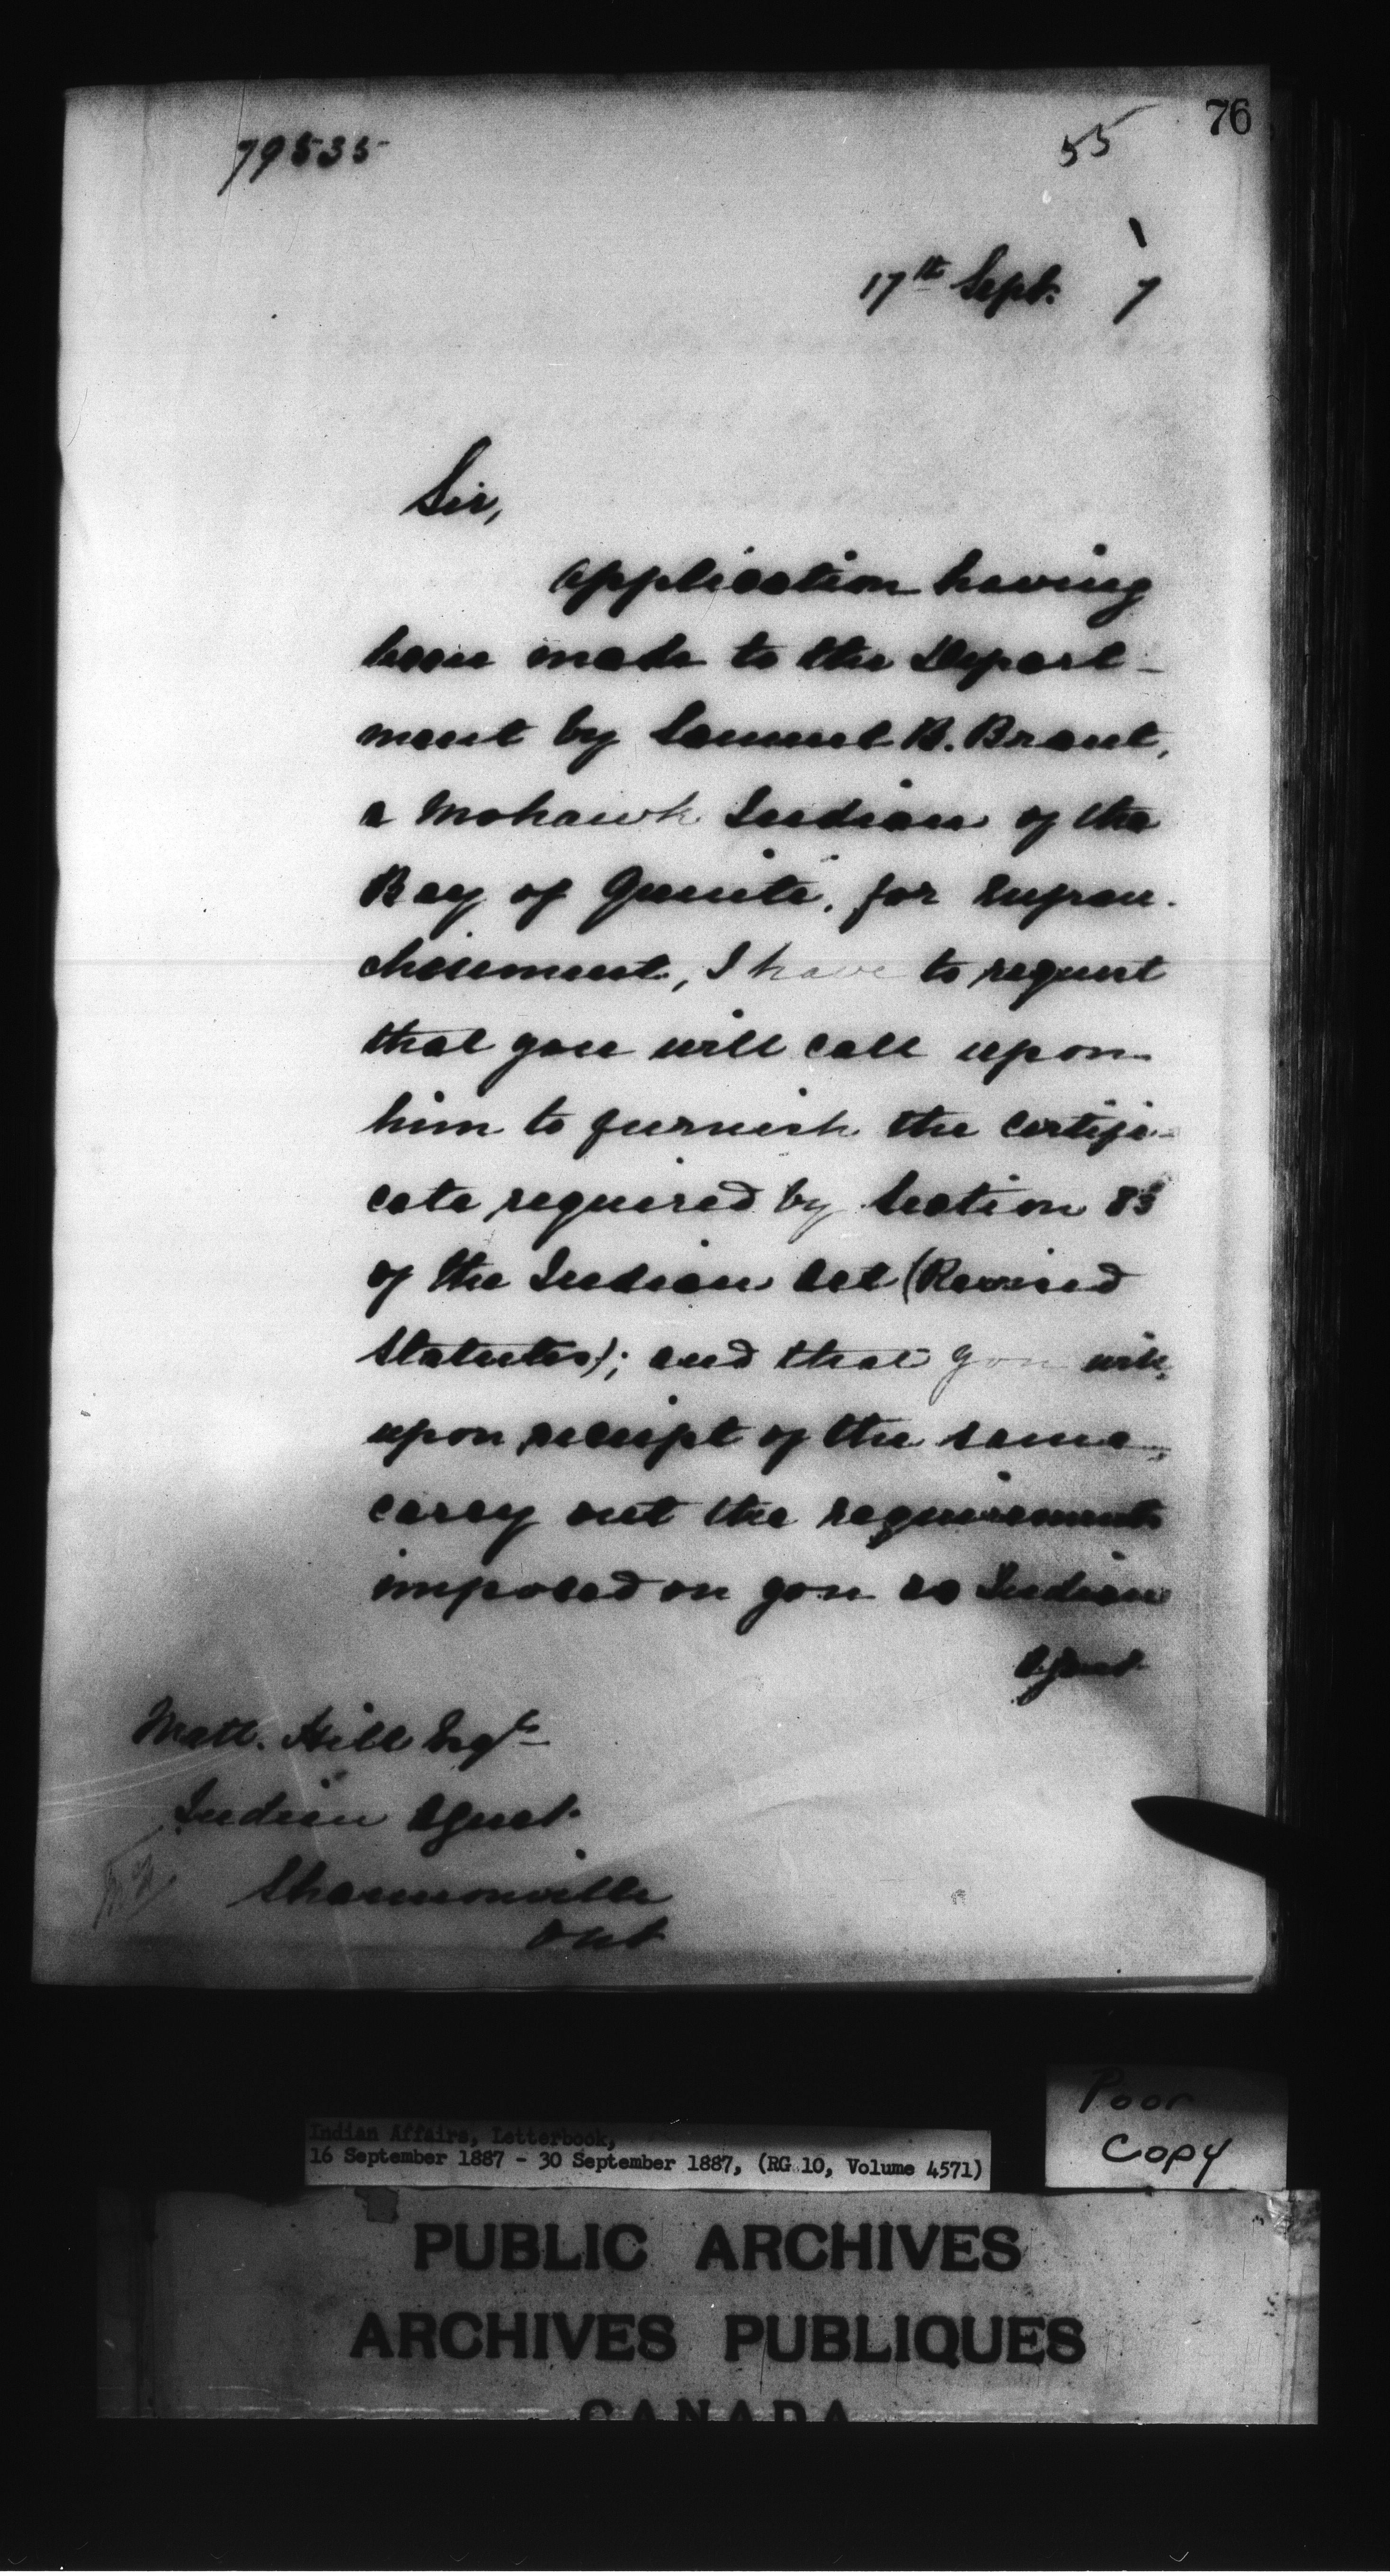 76
79535
55
17th Sept. 7
Sir,
Application having
been made to the Depart-
ment by Samuel B. Brant,
a Mohawk Indian of the
Bay of Quinté, for enfran-
chisement, I have to request
that you will call upon
him to furnish the certifi-
cate required by Section 83
of the Indian Act (Revised
Statutes); and that you will,
upon receipt of the same,
carry out the requirements
imposed on you as Indian
Agent
Matt. Hill Esqre
Indian Agent
Shannonville
Ont
Poor
Copy
Indian Affairs, Letterbook,
16 September 1887 - 30 September 1887, (RG 10, Volume 4571)
PUBLIC ARCHIVES
ARCHIVES PUBLIQUES
CANADA